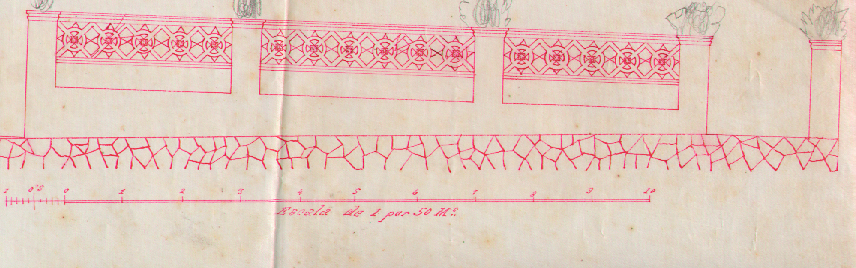 1 0'5 0 1 2 3 4 5 6 7 8 9 10
Escala de 1 per 50 Ms.